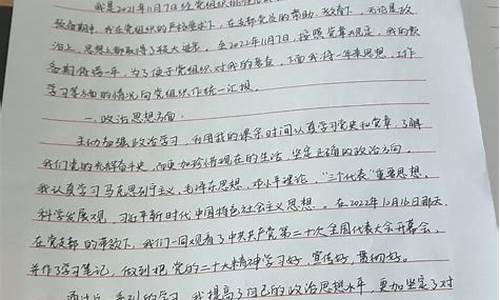 我是2021年11月7日经党组织批准
预备期中,我在党组织的严格要求下,在支部党员的帮助、教育下,无论是政
治上、思想上都取得了很大进步。在2022年11月7日,按照党章规定,我的预
备期将满一年。为了便于党组织对我的考查,下面我将一年来思想、工作
学习等方面的情况向党组织作统一汇报。
一、政治思想方面。
主动加强政治学习,利用我的课余时间认真学习党史和党章,了解
我们党的光辉奋斗史,从而更加珍惜现在的生活,坚定正确的政治方向。
我认真学习马克思列宁主义、毛泽东思想、邓小平理论、“三个代表”重要思想、
科学发展观、习近平新时代中国特色社会主义思想。在2022年10月16日那天,
在党支部的带领下,我们一同观看了中共共产党第二十次全国代表大会开幕会,
并作了学习笔记,做到把党的二十大精神学习好、宣传好、贯彻好。
通过这一系列的学习,我提高了自己的政治思想水平,更加坚定了对